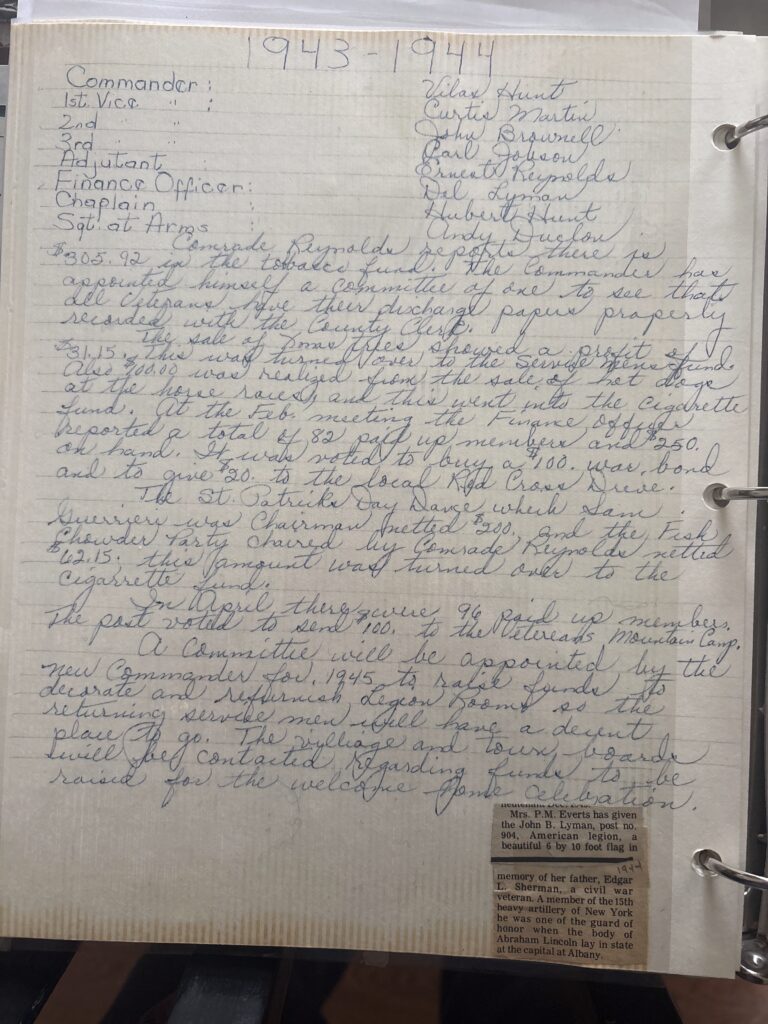 1943-1944
Commander: Vilas Hunt
1st. Vice " : Curtis Martin
2nd " John Brownell
3rd " Carl Jobson
Adjutant : Ernest Reynolds
Finance Officer: Del Lyman
Chaplain : Hubert Hunt
Sgt. at Arms : Andy Duchon
Comrade Reynolds reports there is
$305.92 in the tobacco fund. The Commander has
appointed himself a committee of one to see that
all Veterans have their discharge papers properly
recorded with the County Clerk.
The sale of Xmas trees showed a profit of
$31.15. this was turned over to the Service Mens fund.
Also $100.00 was realized from the sale of hot dogs
at the horse races, and this went into the cigarette
fund. At the Feb. meeting the Finance Officer
reported a total of 82 paid up members and $250.
on hand. It was voted to buy a $100. war bond
and to give $20. to the local Red Cross Drive.
The St. Patricks Day Dance which Sam
Guerrieri was Chairman netted $200. and the Fish
Chowder Party chaired by Comrade Reynolds netted
$62.15; this amount was turned over to the
cigarrette fund.
In April there were 96 paid up members.
The post voted to send $100. to the Vetereans Mountain Camp.
A Committee will be appointed by the
new Commander for 1945 to raise funds to
decorate and refurnish Legion Rooms so the
returning service men will have a decent
place to go. The villiage and town boards
will be contacted regarding funds to be
raised for the welcome home celebration.
lieutenant Dec.
Mrs. P.M. Everts has given
the John B. Lyman, post no.
904, American legion, a
beautiful 6 by 10 foot flag in
1944
memory of her father, Edgar
L. Sherman, a civil war
veteran. A member of the 15th
heavy artillery of New York
he was one of the guard of
honor when the body of
Abraham Lincoln lay in state
at the capital at Albany.